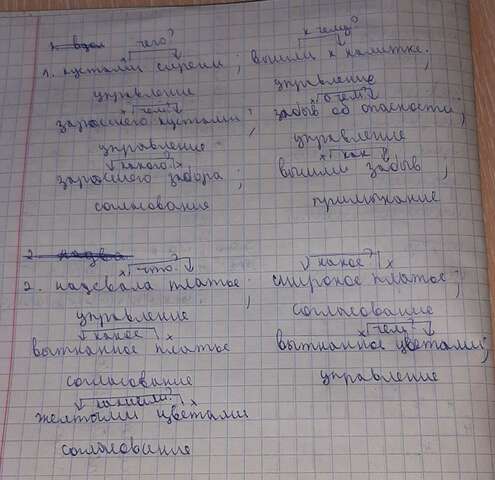 чего? к чему?
1. кустами сирени; вышли к калитке;
управление управление
чем? о чем?
заросшего кустами; забыв об опасности;
управление управление
какого? как
заросшего забора; вышли забыв;
согласование примыкание
что? какое?
2. надевала платье; широкое платье;
управление согласование
какое? чем?
вытканное платье вытканное цветами;
согласование управление
какими?
желтыми цветами
согласование